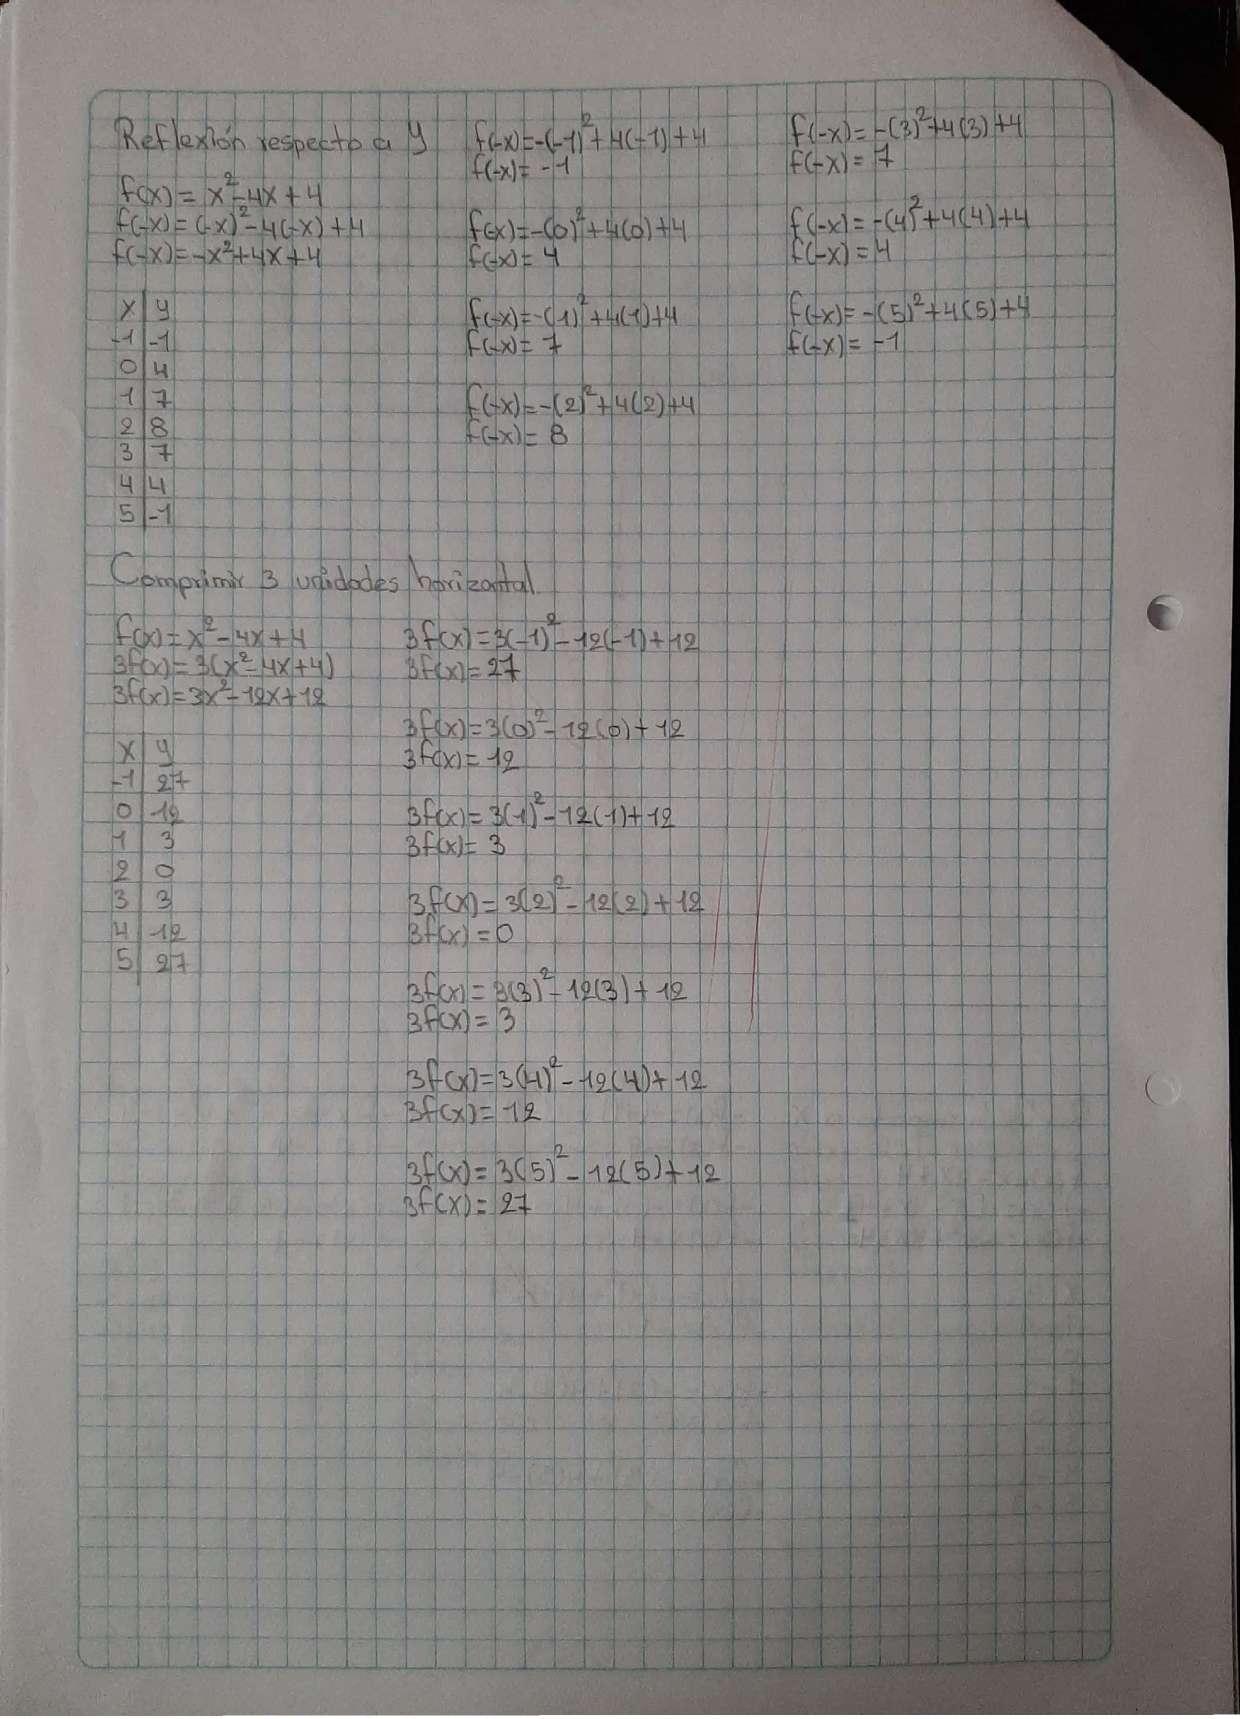 Reflexión respecto a y
f(x)= x²-4x+4
f(-x)=(-x)²-4(-x)+4
f(-x)=-x²+4x+4
x y
-1 -1
0 4
1 7
2 8
3 7
4 4
5 -1
f(-x)=-(-1)²+4(-1)+4
f(-x)=-1
f(-x)=-(0)²+4(0)+4
f(-x)=4
f(-x)=-(1)²+4(1)+4
f(-x)=7
f(-x)=-(2)²+4(2)+4
f(-x)=8
f(-x)=-(3)²+4(3)+4
f(-x)=7
f(-x)=-(4)²+4(4)+4
f(-x)=4
f(-x)=-(5)²+4(5)+4
f(-x)=-1
Comprimir 3 unidades horizontal
f(x)=x²-4x+4
3f(x)=3(x²-4x+4)
3f(x)=3x²-12x+12
x y
-1 27
0 12
1 3
2 0
3 3
4 12
5 27
3f(x)=3(-1)²-12(-1)+12
3f(x)=27
3f(x)=3(0)²-12(0)+12
3f(x)=12
3f(x)=3(1)²-12(1)+12
3f(x)=3
3f(x)=3(2)²-12(2)+12
3f(x)=0
3f(x)=3(3)²-12(3)+12
3f(x)=3
3f(x)=3(4)²-12(4)+12
3f(x)=12
3f(x)=3(5)²-12(5)+12
3f(x)=27